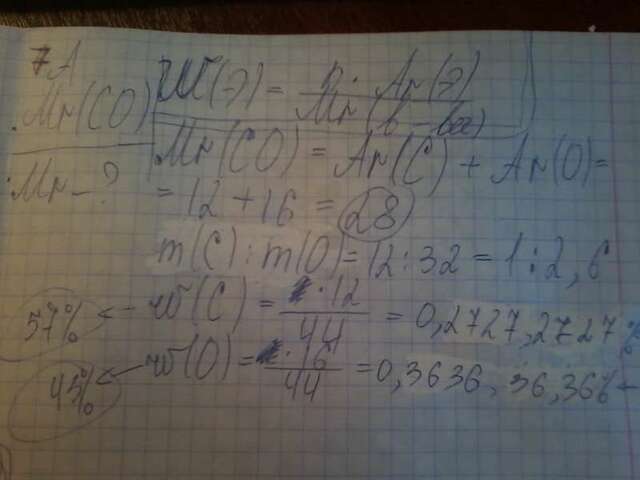 7A
Mr(CO)
Mr - ?
W(Э) = n · Ar(Э) / Mr(в-ва)
Mr(CO) = Ar(C) + Ar(O) =
= 12 + 16 = 28
m(C) : m(O) = 12 : 32 = 1 : 2,6
57% <- w(C) = · 12 / 44 = 0,2727, 2727%
43% <- w(O) = · 16 / 44 = 0,3636, 36,36%